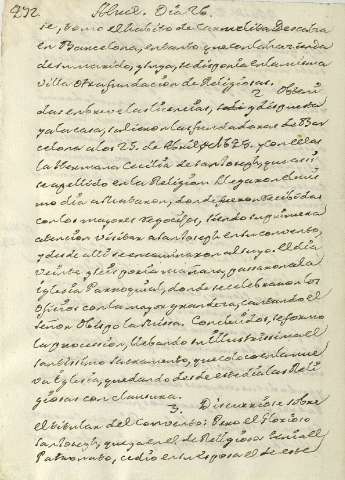 292 Abril. Dia 26.
se, tomo el habito de Carmelita Descalza
en Barcelona, en tanto que con la hazienda
de su marido, y suya, se disponia en la misma
villa otra fundacion de Religiosas.
2 Obteni
das en breve las licencias, y dispuesta
ya la casa, salieron las fundadoras de Bar
celona a los 25. de Abril de y con ellas
la Hermana Cecilia de San Joseph, que assi
se apellidó en la Religion. Llegaron el mis
mo dia a Mataron, donde fueron recibidas
con los mayores regocijos, siendo su primera
atencion visitar a San Joseph en su convento,
y desde alli se encaminaron al suyo. El dia
veinte y seis por la mañana, passaron a la
Iglesia Parroquial, donde se celebraron los
oficios con la mayor grandeza, cantando el
Señor Obispo la Missa. Concluidos, se formó
la procession, llebando su Illustrissima el
Santissimo Sacramento, que colocó en la nue
va Iglesia, quedando desde este dia las Reli
giosas con clausura.
3. Discurriose sobre
el titular del Convento: Pero el Glorioso
San Joseph, que ya en el de Religiosos tenia el
Patronato, cedio en su Esposa el de este